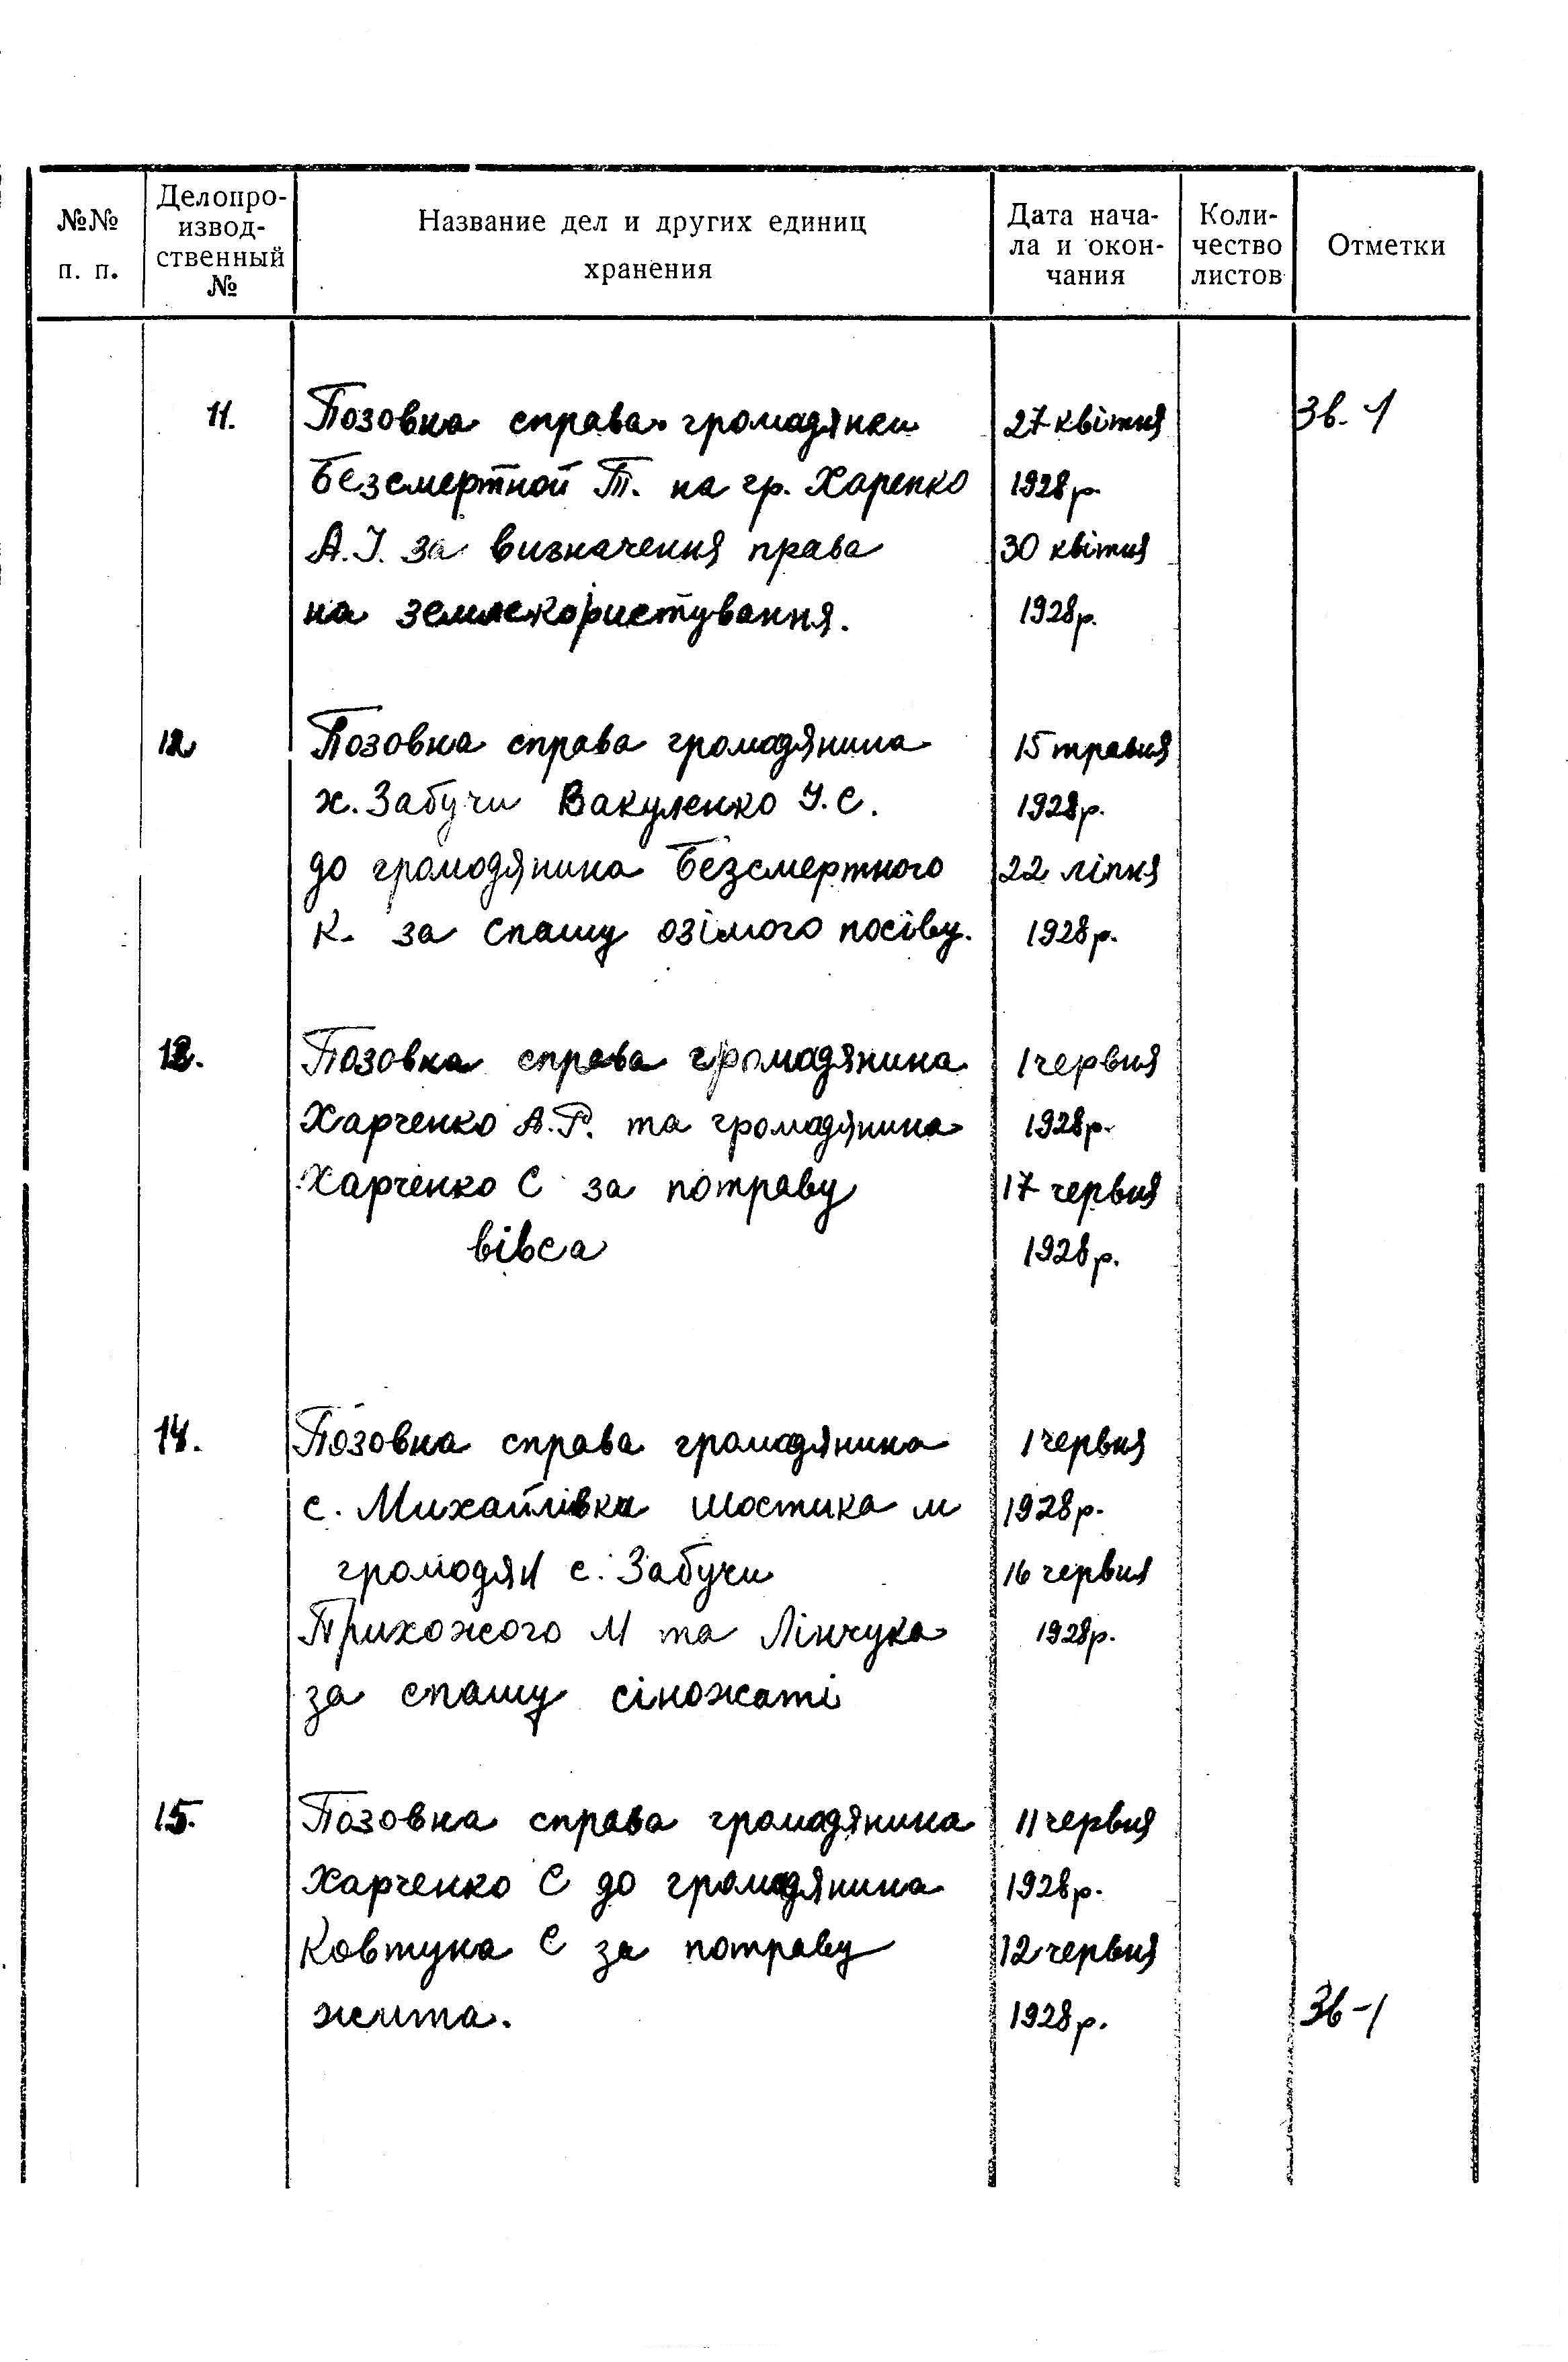 №№ п. п.
Делопроизвод-ственный №
Название дел и других единиц хранения
Дата нача-ла и окон-чания
Коли-чество листов
Отметки
11. Позовна справа громадянки 27 квітня Зв. -1
Безсмертной Т. на гр. Харенко 1928 р.
А.І. за визначення права 30 квітня
на землекористування. 1928 р.
12 Позовна справа громадянина 15 травня
х. Забучи Вакуленко І. С. 1928 р.
до громодянина Безсмертного 22 ліпня
К. за спашу озімого посіву. 1928 р.
13. Позовна справа громадянина 1 червня
Харченко А.Р. та громадянина 1928 р.
Харченко С за потраву 17 червня
вівса 1928 р.
14. Позовна справа громадянина 1 червня
с. Михайлівка Шостика м 1928 р.
громодян с. Забучи 16 червня
Прихожого М та Лінчука 1928 р.
за спашу сіножаті
15. Позовна справа громадянина 11 червня
Харченко С до громадянина 1928 р.
Ковтуна С за потраву 12 червня
жита. 1928 р. Зв -1